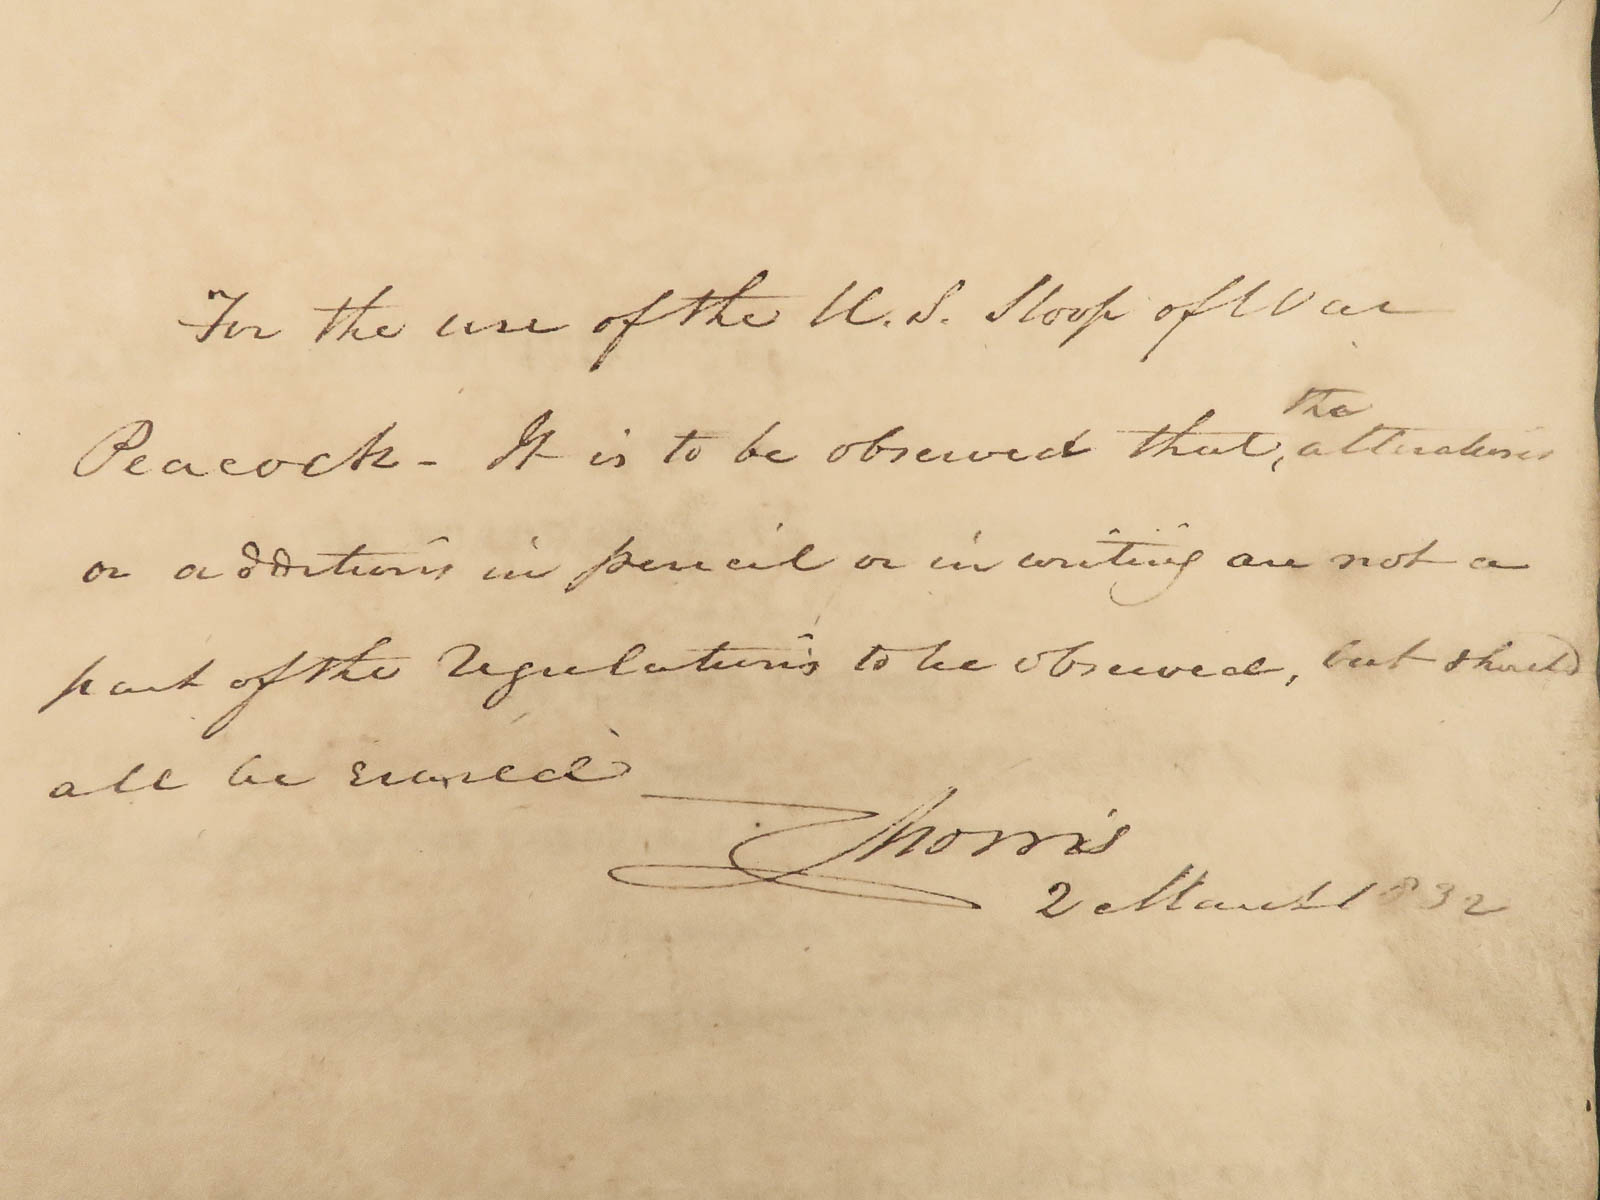 For the use of the U. S. Sloop of War
Peacock - It is to be observed that, the alterations
or additions in pencil or in writing are not a
part of the regulations to be observed, but should
all be erased
Morris
2 March 1832